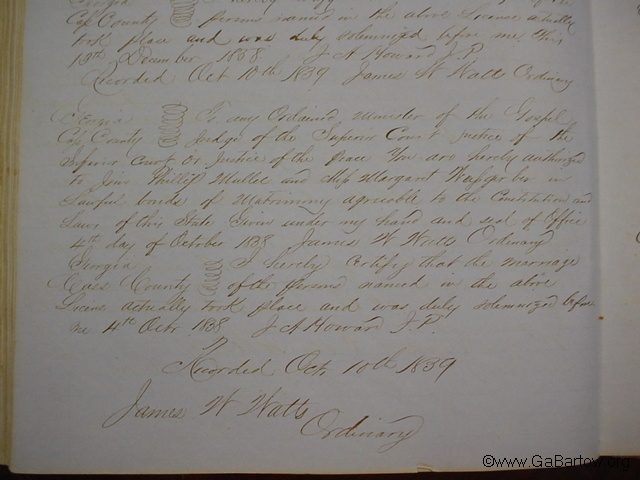 Georgia
Cass County persons named in the above License actually
took place and was duly solemnized before me this
13th December 1838 J A Howard J.P
Recorded Oct 10th 1839 James W Watts Ordinary
Georgia To any Ordained minister of the Gospel
Cass County Judge of the Superior Court Justice of the
Inferior Court or Justice of the Peace You are hereby authorized
to Join Phillip Mullee and Miss Margaret in
Lawful bonds of Matrimony agreeable to the Constitution and
Laws of this State Given under my hand and seal of Office
4th day of October 1838 James W Watts Ordinary
Georgia I hereby Certify that the marriage
Cass County of the persons named in the above
License actually took place and was duly solemnized before
me 4th Octr 1838 J A Howard J.P
Recorded Oct 10th 1839
James W Watts
Ordinary
©www.GaBartow.org